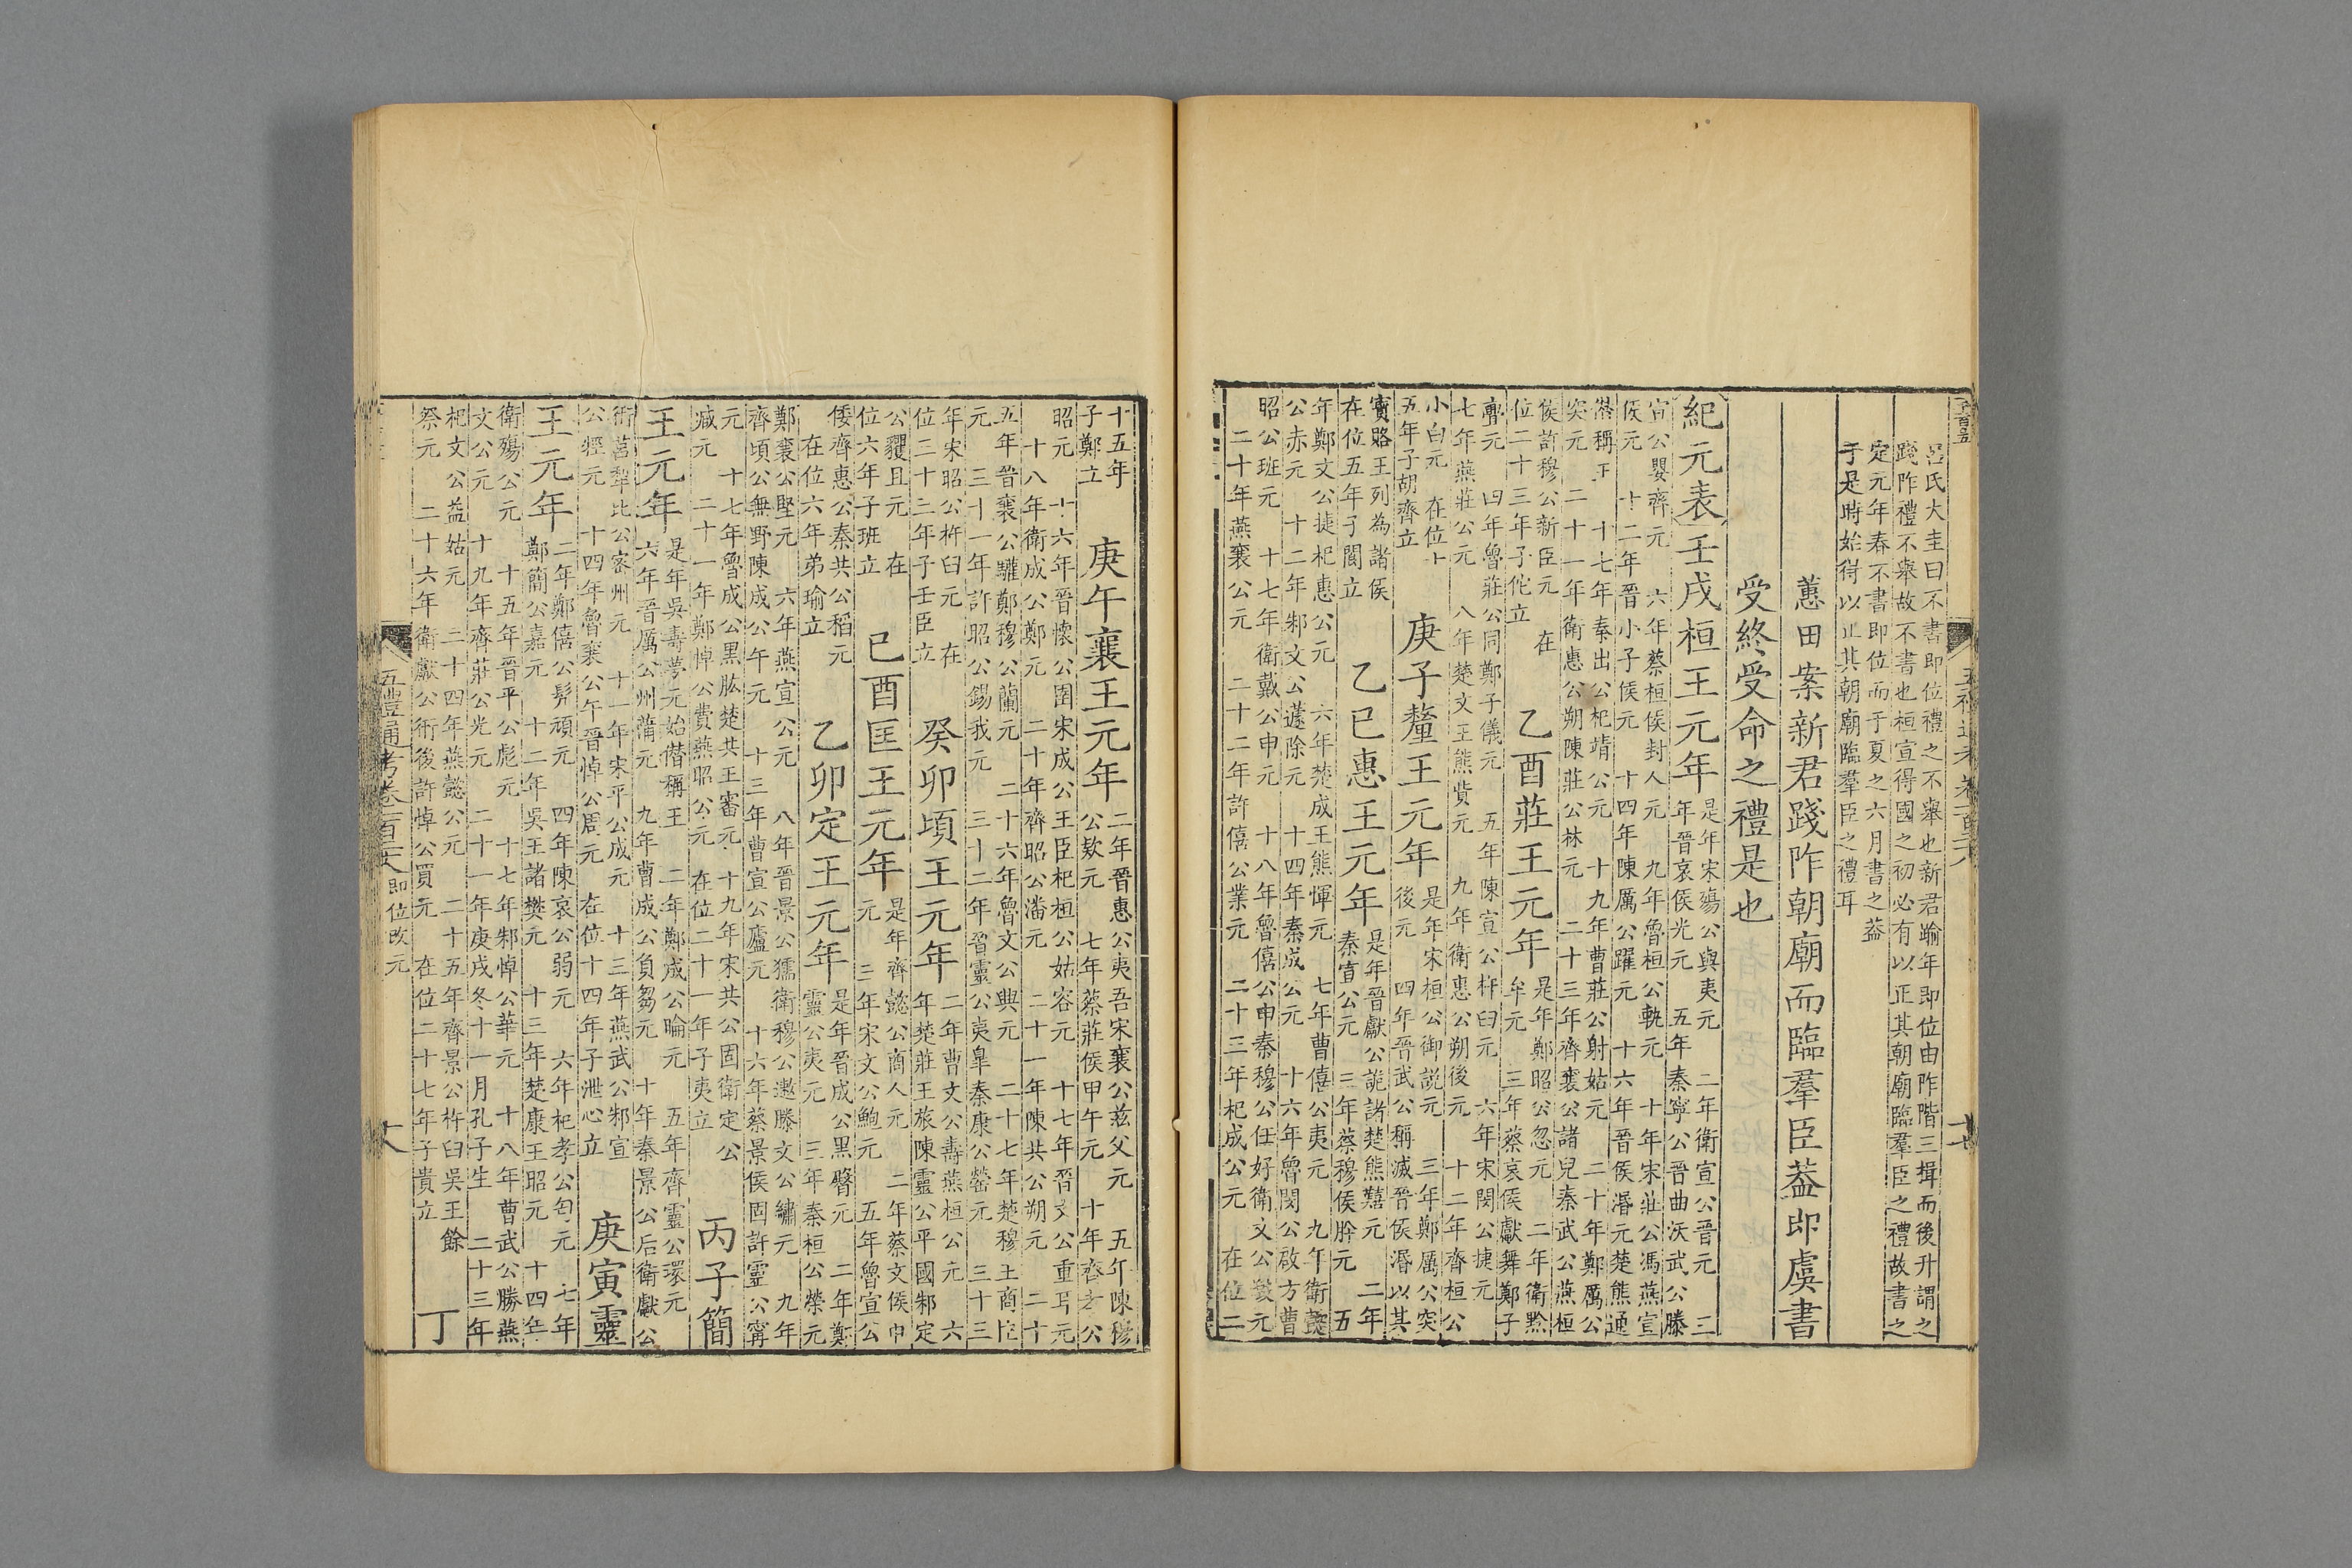 呂氏大圭曰不書即位禮之不舉也新君踰年即位由阼階三揖而後升謂之
踐阼禮不舉故不書也桓宣得國之初必有以正其朝廟臨羣臣之禮故書之
定元年春不書即位而于夏之六月書之葢
于是時始得以正其朝廟臨羣臣之禮耳
蕙田案新君踐阼朝廟而臨羣臣葢即虞書
受終受命之禮是也
紀元表
壬戌桓王元年
是年宋殤公與夷元 二年衛宣公晉元 三
年晉哀侯光元 五年秦寧公晉曲沃武公滕
宣公嬰齊元 六年蔡桓侯封人元 九年魯桓公軌元 十年宋莊公馮燕宣
侯元 十二年晉小子侯元 十四年陳厲公躍元 十六年晉侯湣元楚熊通
僭稱王 十七年秦出公杞靖公元 十九年曹莊公射姑元 二十年鄭厲公
突元 二十一年衛惠公朔陳莊公林元 二十三年齊襄公諸兒秦武公燕桓
侯許穆公新臣元 在
位二十三年子佗立
乙酉莊王元年
是年鄭昭公忽元 二年衛黔
牟元 三年蔡哀侯獻舞鄭子
亹元 四年魯莊公同鄭子儀元 五年陳宣公杵臼元 六年宋閔公捷元
七年燕莊公元 八年楚文王熊貲元 九年衛惠公朔後元 十二年齊桓公
小白元 在位十
五年子胡齊立
庚子釐王元年
是年宋桓公御説元 三年鄭厲公突
後元 四年晉武公稱滅晉侯湣以其
寶賂王列為諸侯
在位五年子閬立
乙巳惠王元年
是年晉獻公詭諸楚熊囏元 二年
秦宣公元 三年蔡穆侯肹元 五
年鄭文公捷杞惠公元 六年楚成王熊惲元 七年曹僖公夷元 九年衛懿
公赤元 十二年邾文公蘧除元 十四年秦成公元 十六年魯閔公啟方曹
昭公班元 十七年衛戴公申元 十八年魯僖公申秦穆公任好衛文公燬元
二十年燕襄公元 二十二年許僖公業元 二十三年杞成公元 在位二
十五年
子鄭立
庚午襄王元年
二年晉惠公夷吾宋襄公茲父元 五年陳穆
公欵元 七年蔡莊侯甲午元 十年齊孝公
昭元 十六年晉懷公圉宋成公王臣杞桓公姑容元 十七年晉文公重耳元
十八年衛成公鄭元 二十年齊昭公潘元 二十一年陳共公朔元 二十
五年晉襄公驩鄭穆公蘭元 二十六年魯文公興元 二十七年楚穆王商臣
元 三十一年許昭公錫我元 三十二年晉靈公夷皐秦康公罃元 三十三
年宋昭公杵臼元 在
位三十三年子壬臣立
癸卯頃王元年
二年曹文公壽燕桓公元 六
年楚莊王旅陳靈公平國邾定
公貜且元 在
位六年子班立
己酉匡王元年
是年齊懿公商人元 二年蔡文侯申
元 三年宋文公鮑元 五年魯宣公
倭齊惠公秦共公稻元
在位六年弟瑜立
乙卯定王元年
是年晉成公黑臀元 二年鄭
靈公夷元 三年秦桓公榮元
鄭襄公堅元 六年燕宣公元 八年晉景公獳衛穆公遬滕文公繡元 九年
齊頃公無野陳成公午元 十三年曹宣公廬元 十六年蔡景侯固許靈公寗
元 十七年魯成公黑肱楚共王審元 十九年宋共公固衛定公
臧元 二十一年鄭悼公費燕昭公元 在位二十一年子夷立
丙子簡
王元年
是年吳壽夢元始僭稱王 二年鄭成公睔元 五年齊靈公環元
六年晉厲公州蒲元 九年曹成公負芻元 十年秦景公后衛獻公
衎莒犂比公密州元 十一年宋平公成元 十三年燕武公邾宣
公牼元 十四年魯襄公午晉悼公周元 在位十四年子泄心立
庚寅靈
王元年
二年鄭僖公髠頑元 四年陳哀公弱元 六年杞孝公匄元 七年
鄭簡公嘉元 十二年吳王諸樊元 十三年楚康王昭元 十四年
衛殤公元 十五年晉平公彪元 十七年邾悼公華元 十八年曹武公勝燕
文公元 十九年齊莊公光元 二十一年庚戌冬十一月孔子生 二十三年
杞文公益姑元 二十四年燕懿公元 二十五年齊景公杵臼吳王餘
祭元 二十六年衛獻公衎後許悼公買元 在位二十七年子貴立
丁
五禮通考卷一百二十八 即位改元